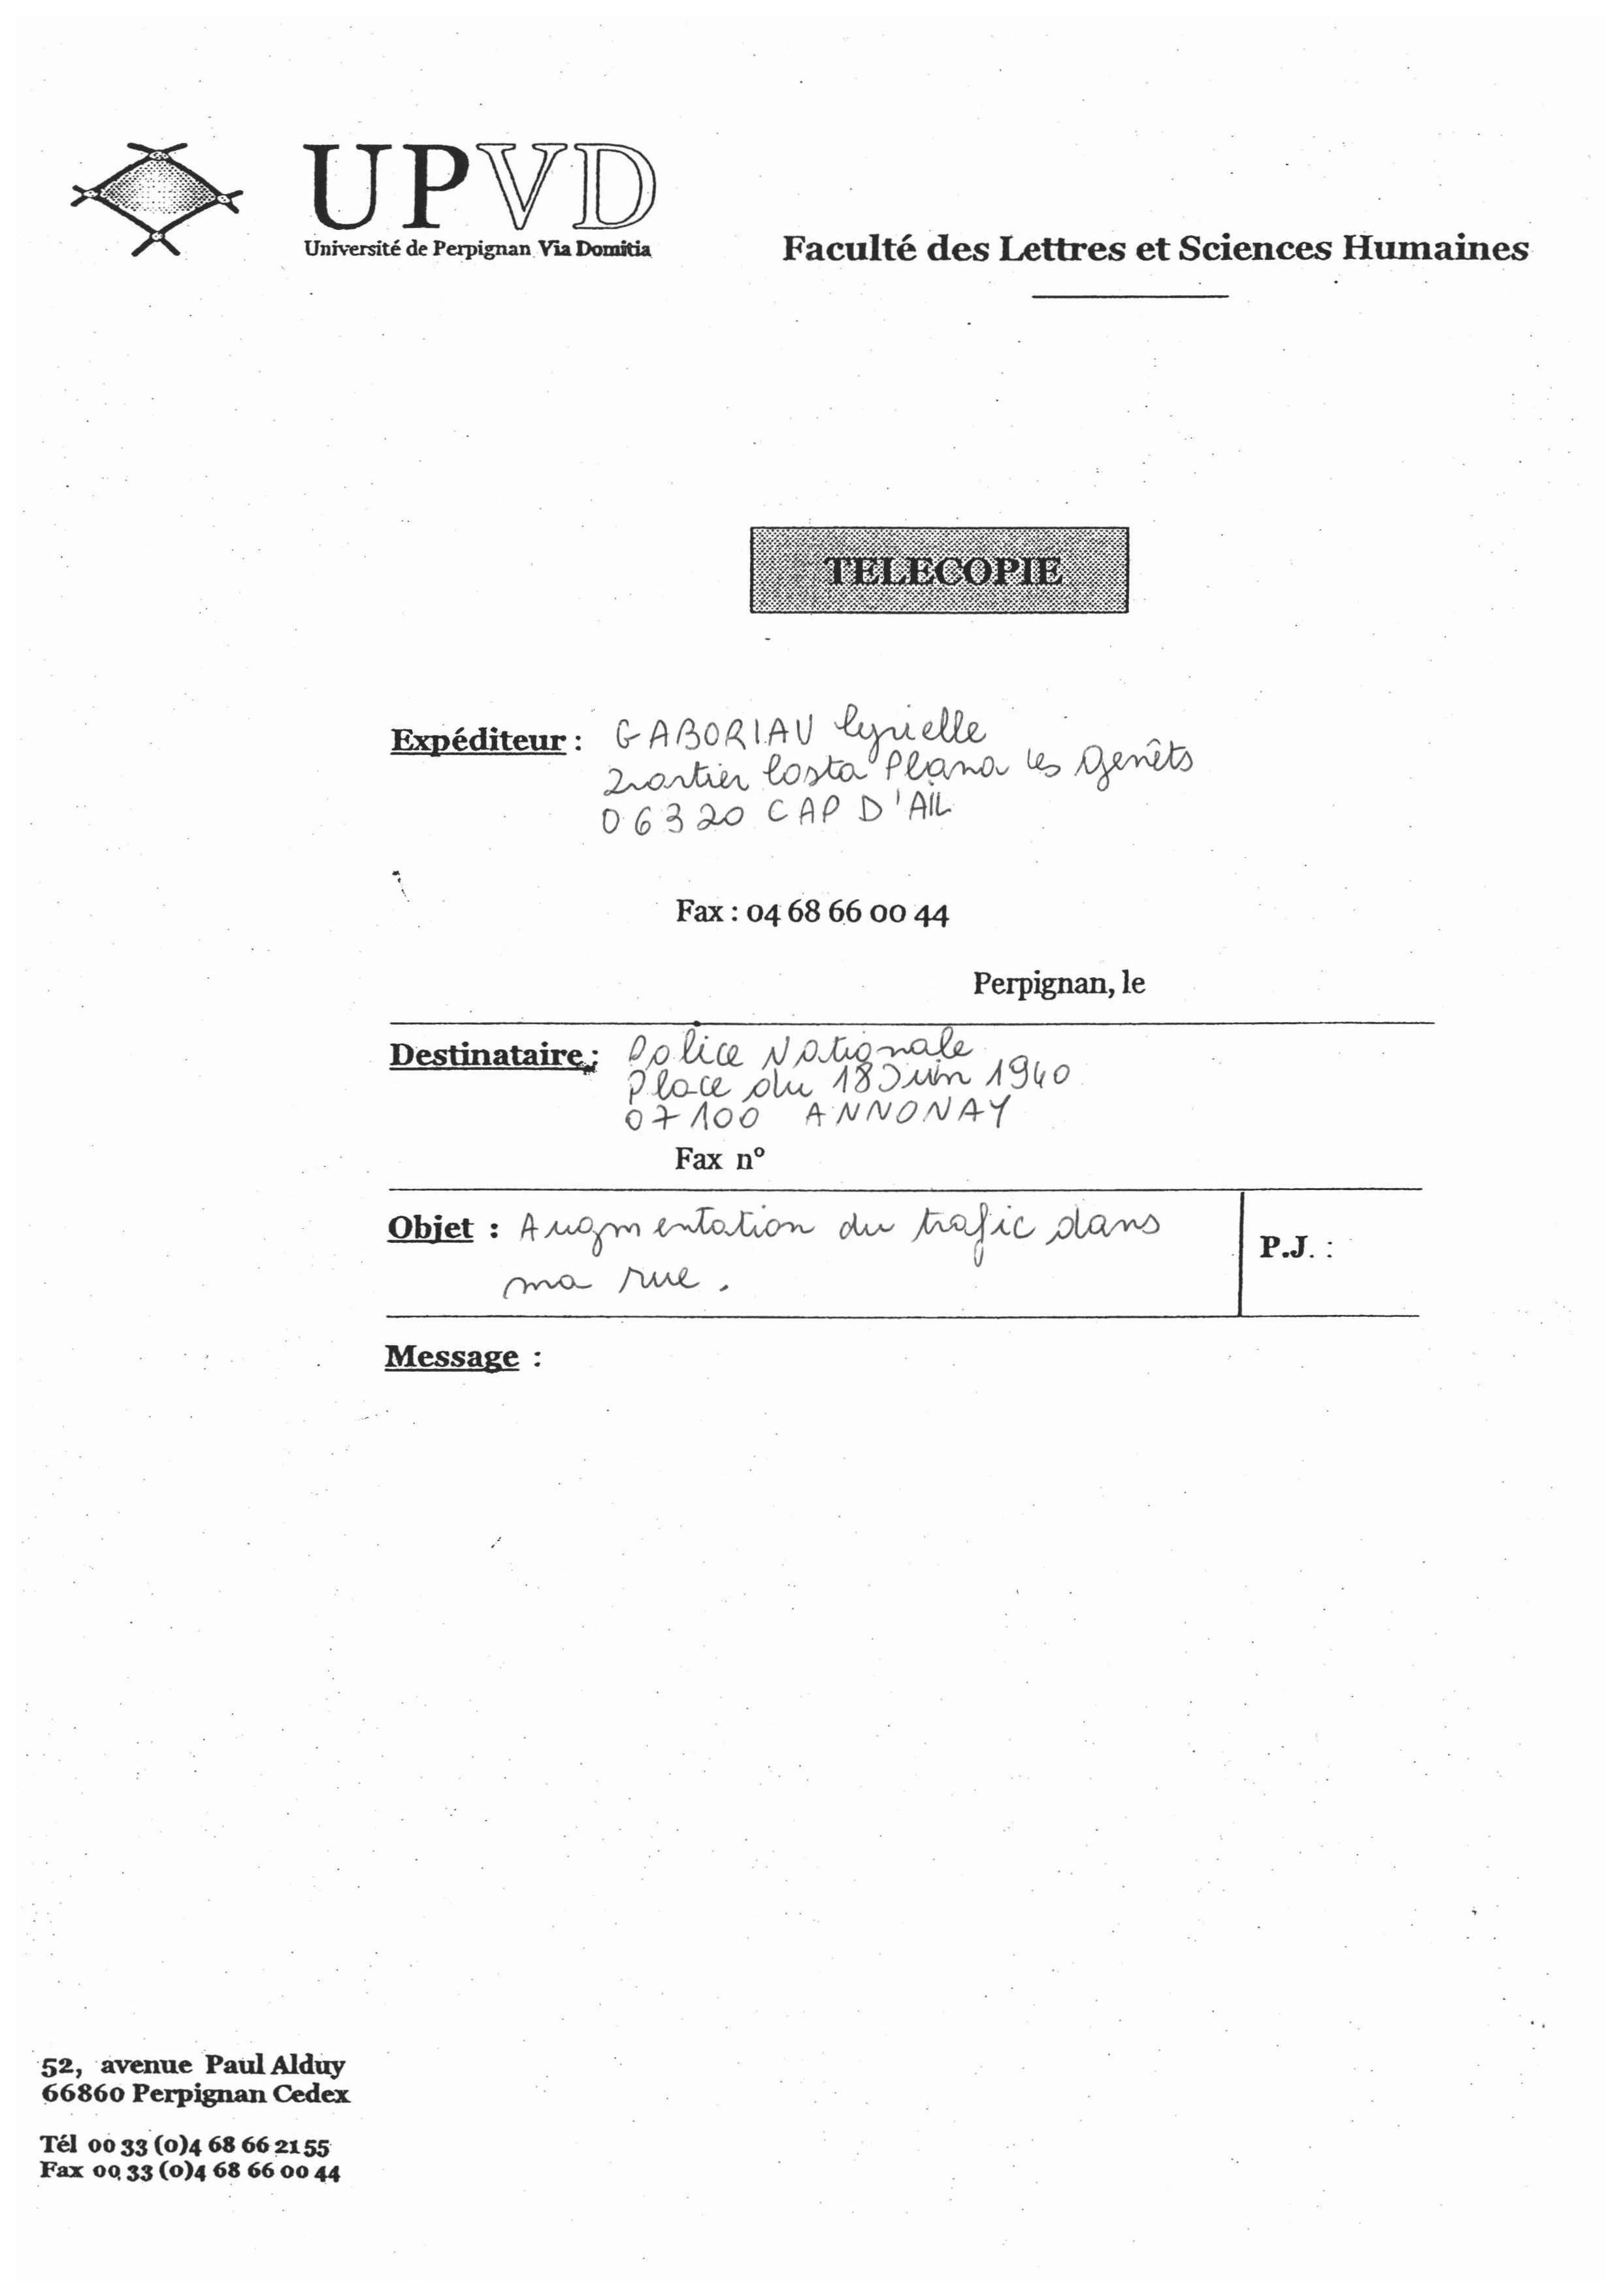 UPVD
Université de Perpignan Via Domitia
Faculté des Lettres et Sciences Humaines
TELECOPIE
Expéditeur : GABORIAU Cyrielle
Quartier Costa Plana les Genêts
06320 CAP D'AIL
Fax : 04 68 66 00 44
Perpignan, le
Destinataire : Police Nationale
Place du 18 Juin 1940
07100 ANNONAY
Fax n°
Objet : Augmentation du trafic dans
ma rue.
P.J. :
Message :
52, avenue Paul Alduy
66860 Perpignan Cedex
Tél 00 33 (0)4 68 66 21 55
Fax 00 33 (0)4 68 66 00 44